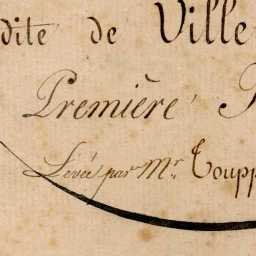 dite de Ville
Première
Levée par Mr. Toupp